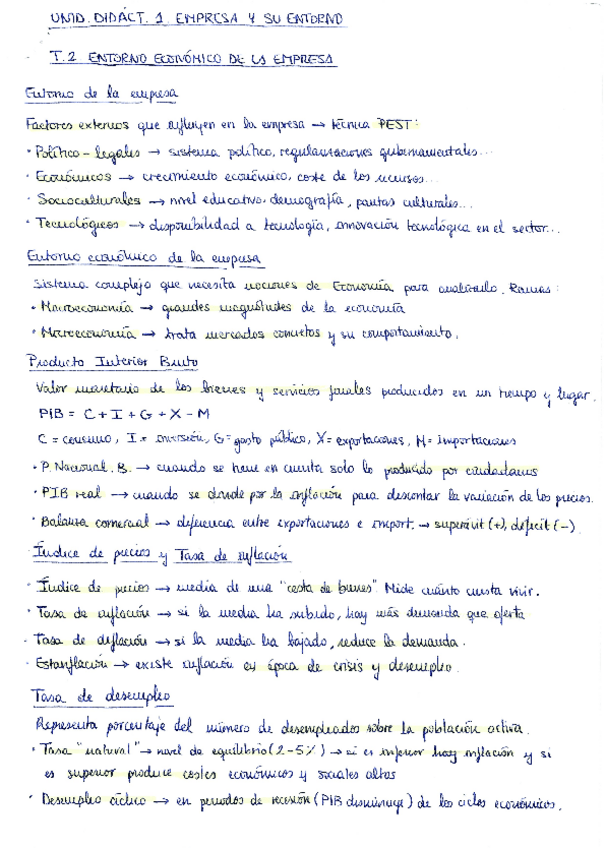 UNID. DIDÁCT. 1 EMPRESA Y SU ENTORNO
T.2 ENTORNO ECONÓMICO DE LA EMPRESA
Entorno de la empresa
Factores externos que influyen en la empresa → técnica PEST:
· Político-legales → sistema político, regularizaciones gubernamentales...
· Económicos → crecimiento económico, coste de los recursos...
· Socioculturales → nivel educativo, demografía, pautas culturales...
· Tecnológicos → disponibilidad a tecnología, innovación tecnológica en el sector...
Entorno económico de la empresa
Sistema complejo que necesita nociones de Economía para analizarlo. Ramas:
· Macroeconomía → grandes magnitudes de la economía
· Microeconomía → trata mercados concretos y su comportamiento.
Producto Interior Bruto
Valor monetario de los bienes y servicios finales producidos en un tiempo y lugar.
PIB = C + I + G + X - M
C = consumo, I = inversión, G = gasto público, X = exportaciones, M = importaciones
· P. Nacional. B. → cuando se tiene en cuenta solo lo producido por ciudadanos
· PIB real → cuando se divide por la inflación para descontar la variación de los precios.
· Balanza comercial → diferencia entre exportaciones e import. → superávit (+), déficit (-)
Índice de precios y Tasa de inflación
· Índice de precios → media de una "cesta de bienes". Mide cuánto cuesta vivir.
· Tasa de inflación → si la media ha subido, hay más demanda que oferta
· Tasa de deflación → si la media ha bajado, reduce la demanda.
· Estanflación → existe inflación en época de crisis y desempleo.
Tasa de desempleo
Representa porcentaje del número de desempleados sobre la población activa.
· Tasa "natural" → nivel de equilibrio (2-5%) → si es inferior hay inflación y si
es superior produce costes económicos y sociales altos
· Desempleo cíclico → en periodos de recesión (PIB disminuye) de los ciclos económicos.